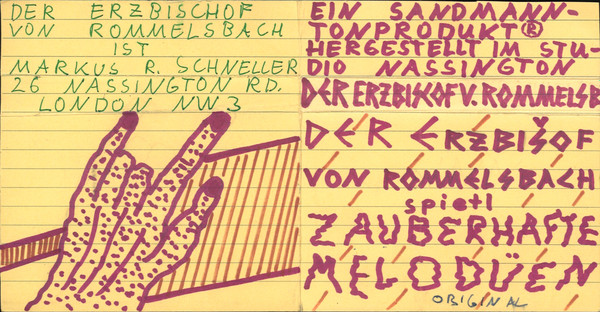 DER ERZBISCHOF
VON ROMMELSBACH
IST
MARKUS R. SCHNELLER
26 NASSINGTON RD.
LONDON NW3
EIN SANDMANN-
TONPRODUKT®
HERGESTELLT IM STU-
DIO NASSINGTON
DER ERZBISKOF V. ROMMELSB
DER ERZBIŠOF
VON ROMMELSBACH
spietl
ZAUBERHAFTE
MELODÜEN
ORIGINAL